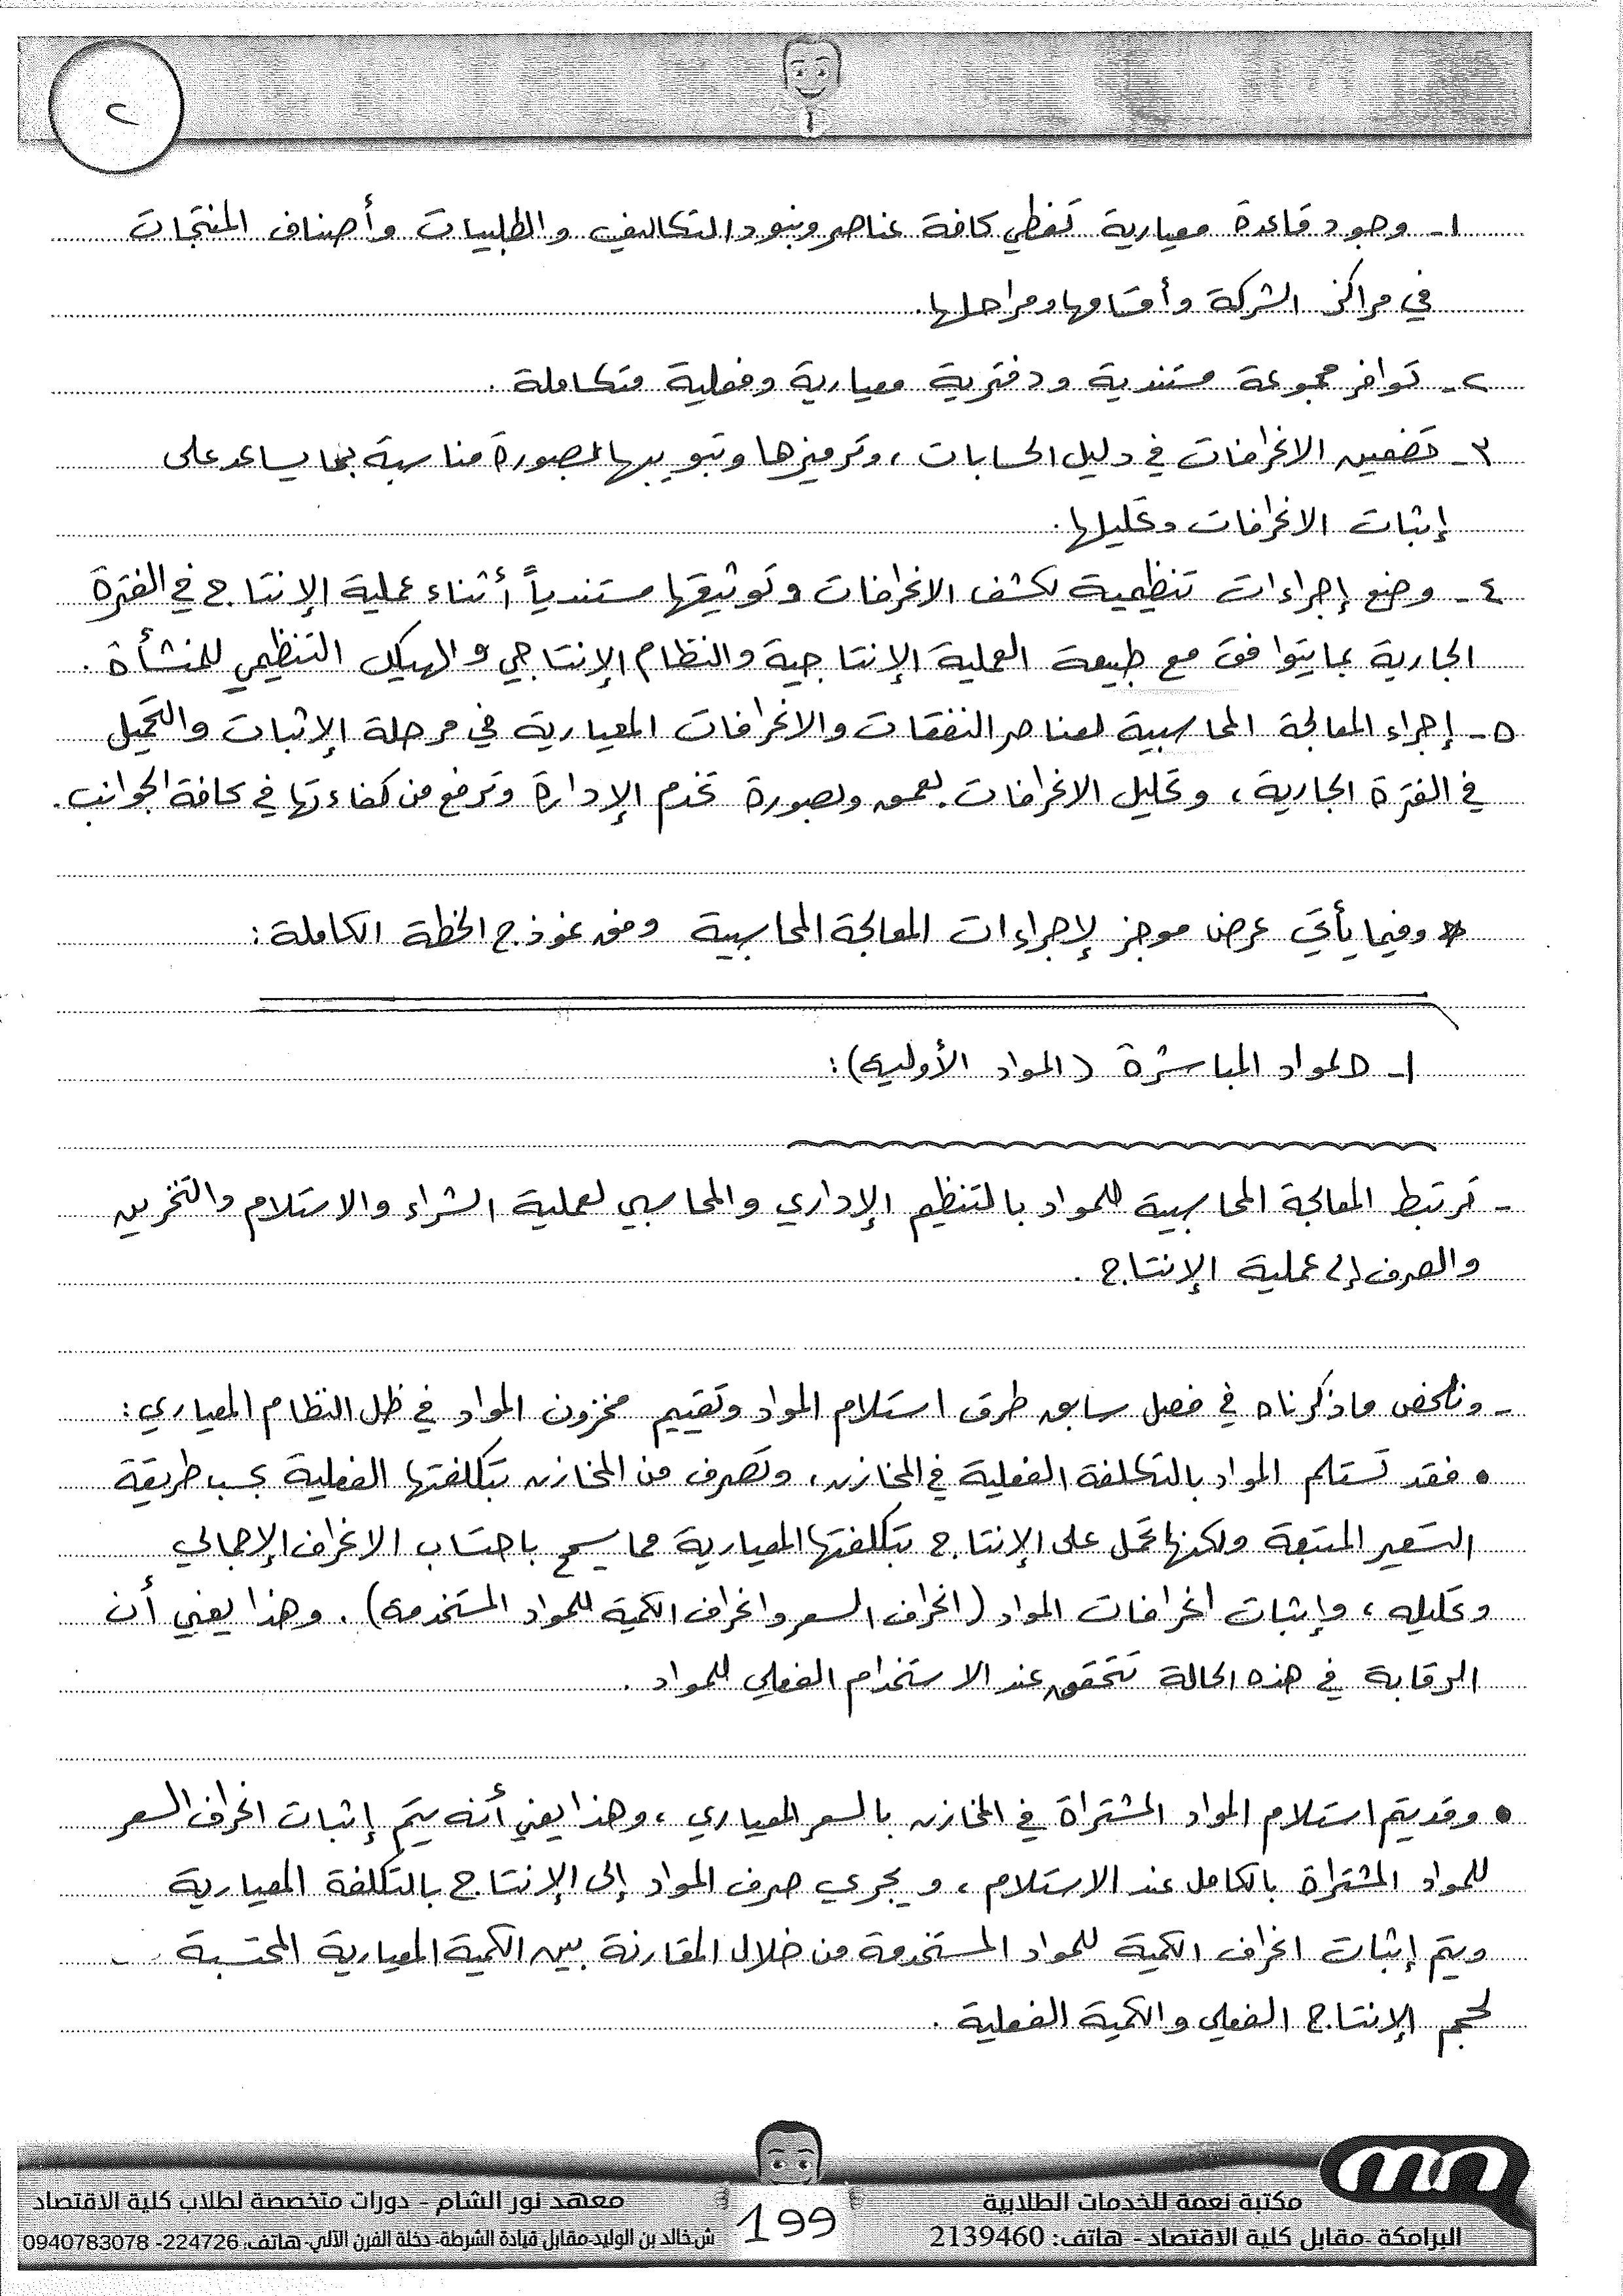 ٢
١- وجود قاعدة معيارية تغطي كافة عناصر وبنود التكاليف والطلبيات وأصناف المنتجات
في مراكز الشركة وأقسامها ومراحلها.
٢- توافر مجموعة مستندية ودفترية معيارية وفعلية متكاملة .
٣- تضمين الانحرافات في دليل الحسابات ، وترميزها وتبويبها بصورة مناسبة بما يساعد على
إثبات الانحرافات وتحليلها .
٤- وضع إجراءات تنظيمية لكشف الانحرافات وتوثيقها مستندياً أثناء عملية الإنتاج في الفترة
الجارية بما يتوافق مع طبيعة العملية الإنتاجية والنظام الإنتاجي والهيكل التنظيمي للمنشأة .
٥- إجراء المعالجة المحاسبية لعناصر النفقات والانحرافات المعيارية في مرحلة الإثبات والتحميل
في الفترة الجارية ، وتحليل الانحرافات بعمق وبصورة تخدم الإدارة وترفع من كفاءتها في كافة الجوانب .
* وفيما يأتي عرض موجز لإجراءات المعالجة المحاسبية وفق نموذج الخطة الكاملة :
١- المواد المباشرة (المواد الأولية) :
- ترتبط المعالجة المحاسبية للمواد بالتنظيم الإداري والمحاسبي لعملية الشراء والاستلام والتخزين
والصرف إلى عملية الإنتاج .
- ونلخص ما ذكرناه في فصل سابق طرق استلام المواد وتقييم مخزون المواد في ظل النظام المعياري :
• فقد تستلم المواد بالتكلفة الفعلية في المخازن ، وتصرف من المخازن بتكلفتها الفعلية بحسب طريقة
التسعير المتبعة ولكنها تحمل على الإنتاج بتكلفتها المعيارية مما يسمح باحتساب الانحراف الإجمالي
وتحليله ، وإثبات انحرافات المواد (انحراف السعر وانحراف الكمية للمواد المستخدمة) . وهذا يعني أن
الرقابة في هذه الحالة تتحقق عند الاستخدام الفعلي للمواد .
• وقد يتم استلام المواد المشتراة في المخازن بالسعر المعياري ، وهذا يعني أنه يتم إثبات انحراف السعر
للمواد المشتراة بالكامل عند الاستلام ، ويجري صرف المواد إلى الإنتاج بالتكلفة المعيارية
ويتم إثبات انحراف الكمية للمواد المستخدمة من خلال المقارنة بين الكمية المعيارية المحتسبة
لحجم الإنتاج الفعلي والكمية الفعلية .
مكتبة نعمة للخدمات الطلابية
البرامكة -مقابل كلية الاقتصاد - هاتف: 2139460
199
معهد نور الشام - دورات متخصصة لطلاب كلية الاقتصاد
ش.خالد بن الوليد-مقابل قيادة الشرطة- دخلة الفرن الآلي- هاتف: 224726- 0940783078